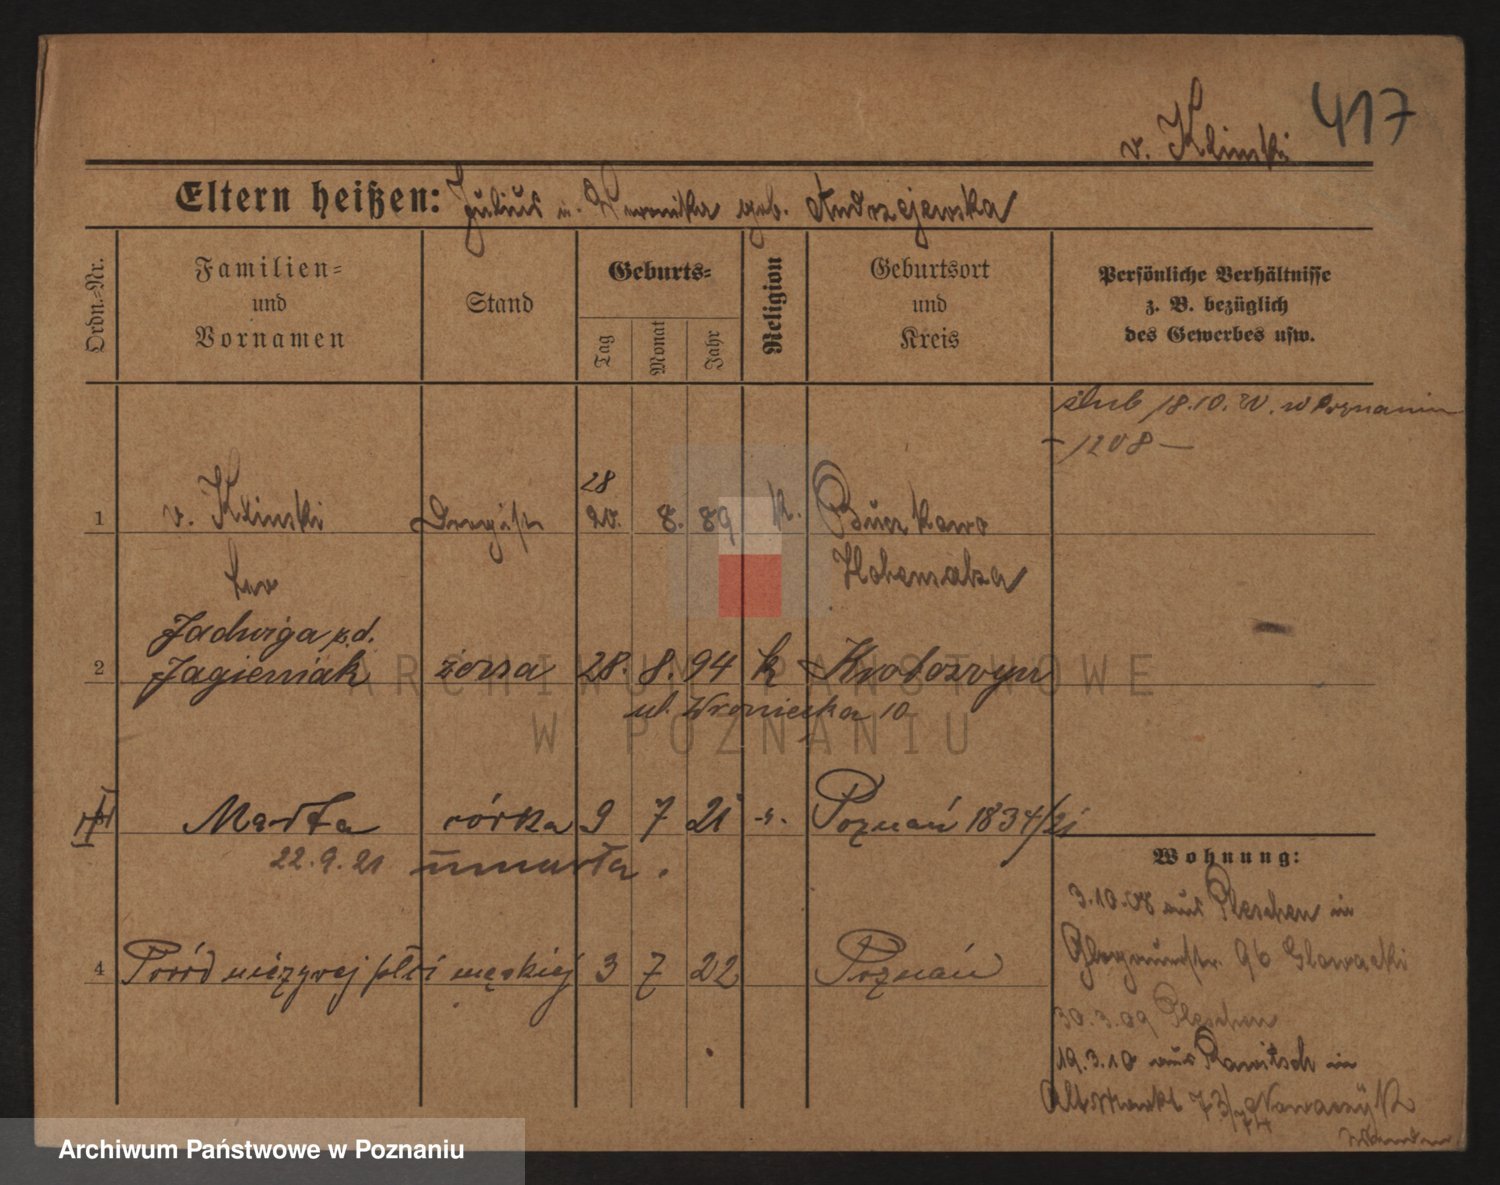 417
v. Klinski
Eltern heißen: Julius u. Weronika geb. Andrzejewska
Ordn.-Nr.
Familien-
und
Vornamen
Stand
Geburts-
Tag
Monat
Jahr
Religion
Geburtsort
und
Kreis
Persönliche Verhältnisse
z. B. bezüglich
des Gewerbes usw.
ślub 18.10.20. w Poznaniu
- 1208 -
28
1 v. Klinski Drogist 20. 8. 89 k. Buczkowo
Leo Hohensalza
Jadwiga z.d.
2 Jagieniak żona 28. 8. 94 k Krotoszyn
ul. Wroniecka 10
ARCHIWUM PAŃSTWOWE
W POZNANIU
Marta córka 9 7 21 Poznań 1834/21
22.9.21 umarła.
4 Poród nieżywej płci męskiej 3 7 22 Poznań
Wohnung:
3.10.08 aus Pleschen in
96 Glowacki
30.3.09 Pleschen
19.3.10 aus Rawitsch in
Alt Markt 73/74
Archiwum Państwowe w Poznaniu